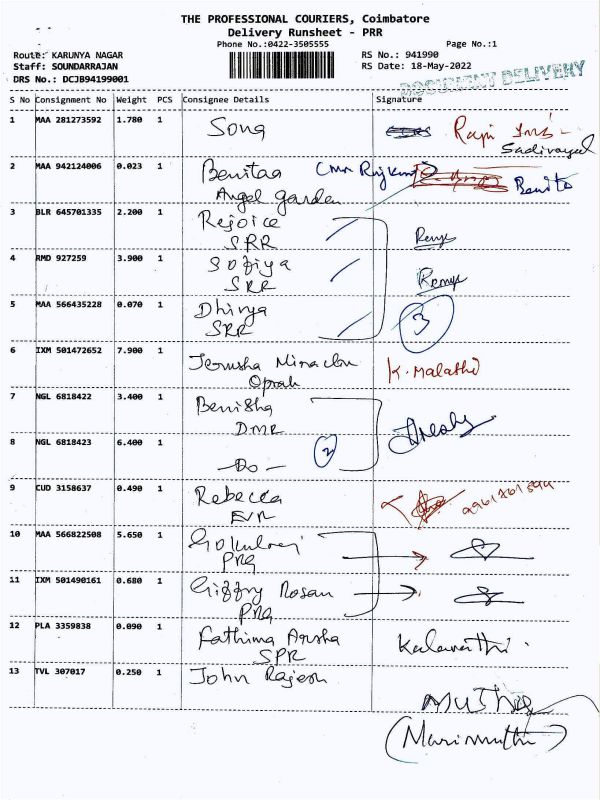 THE PROFESSIONAL COURIERS, Coimbatore
Delivery Runsheet - PRR
Phone No.:0422-3505555 Page No.:1
Route: KARUNYA NAGAR RS No.: 941990
Staff: SOUNDARRAJAN RS Date: 18-May-2022
DRS No.: DCJB94199001
DOCUMENT DELIVERY
S No Consignment No Weight PCS Consignee Details Signature
1 MAA 281273592 1.780 1 Sona
Sadivayal
2 MAA 942124006 0.023 1 Benitaa Benita
Angel garden
3 BLR 645701335 2.200 1 Rejoice
SRR
4 RMD 927259 3.900 1 Sofiya
SRR
5 MAA 566435228 0.070 1 Dhivya 3
SRR
6 IXM 501472652 7.900 1 Jerusha K. Malathi
Oprah
7 NGL 6818422 3.400 1 Benisha
DMR
8 NGL 6818423 6.400 1 -Do- 2
9 CUD 3158637 0.490 1 Rebecca
EVR
10 MAA 566822508 5.650 1 Gokulraj
PRG
11 IXM 501490161 0.680 1 Rosan
PRG
12 PLA 3359838 0.090 1 Fathima Arsha Kalavathi.
SPR
13 TVL 307017 0.250 1 John Rajesh
(Marimuthu)